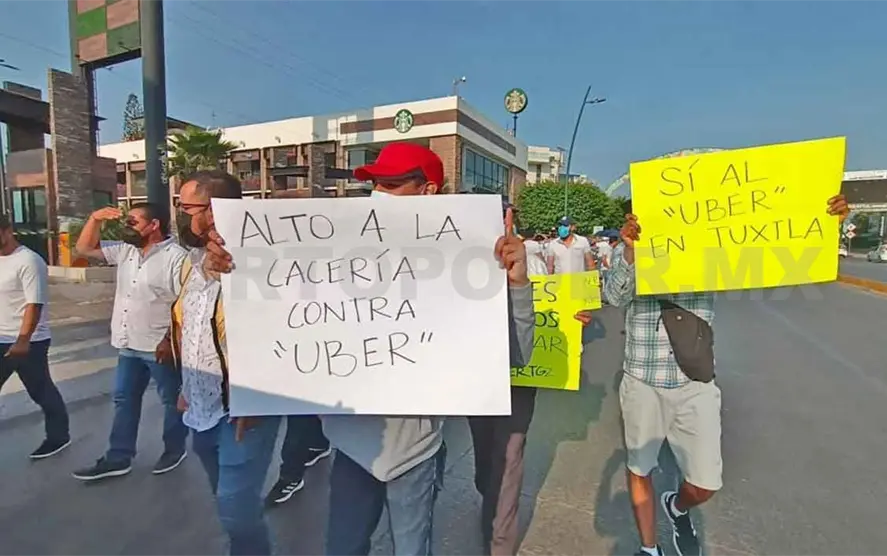 ALTO A LA
CACERÍA
CONTRA
"UBER"
SÍ AL
"UBER"
EN TUXTLA
ES
OS
AR
ERTGZ
CUARTOPODER.MX